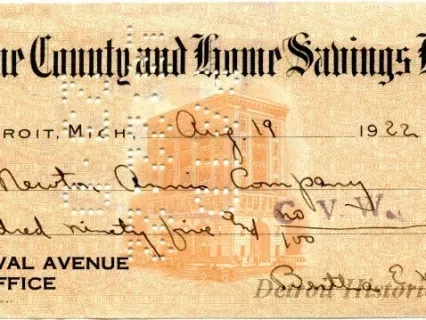 ne County and Home Savings B
TROIT, MICH., Aug. 19 1922
Newton Annis Company
C. V. W.
dred ninety five and no/100
VAL AVENUE
FFICE
Bertha E.
Detroit Historic